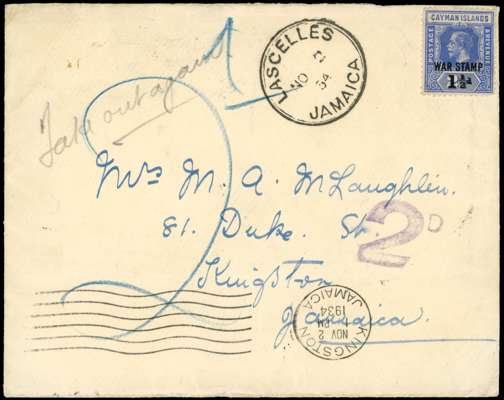 CAYMAN ISLANDS
POSTAGE
& REVENUE
WAR STAMP
1½d
LASCELLES
NO 2
34
JAMAICA
Take out again
2
1
Mrs M. A. McLaughlin.
81. Duke. St.
2D
Kingston
Jamaica.
KINGSTON
1 PM
NOV 2
1934
JAMAICA